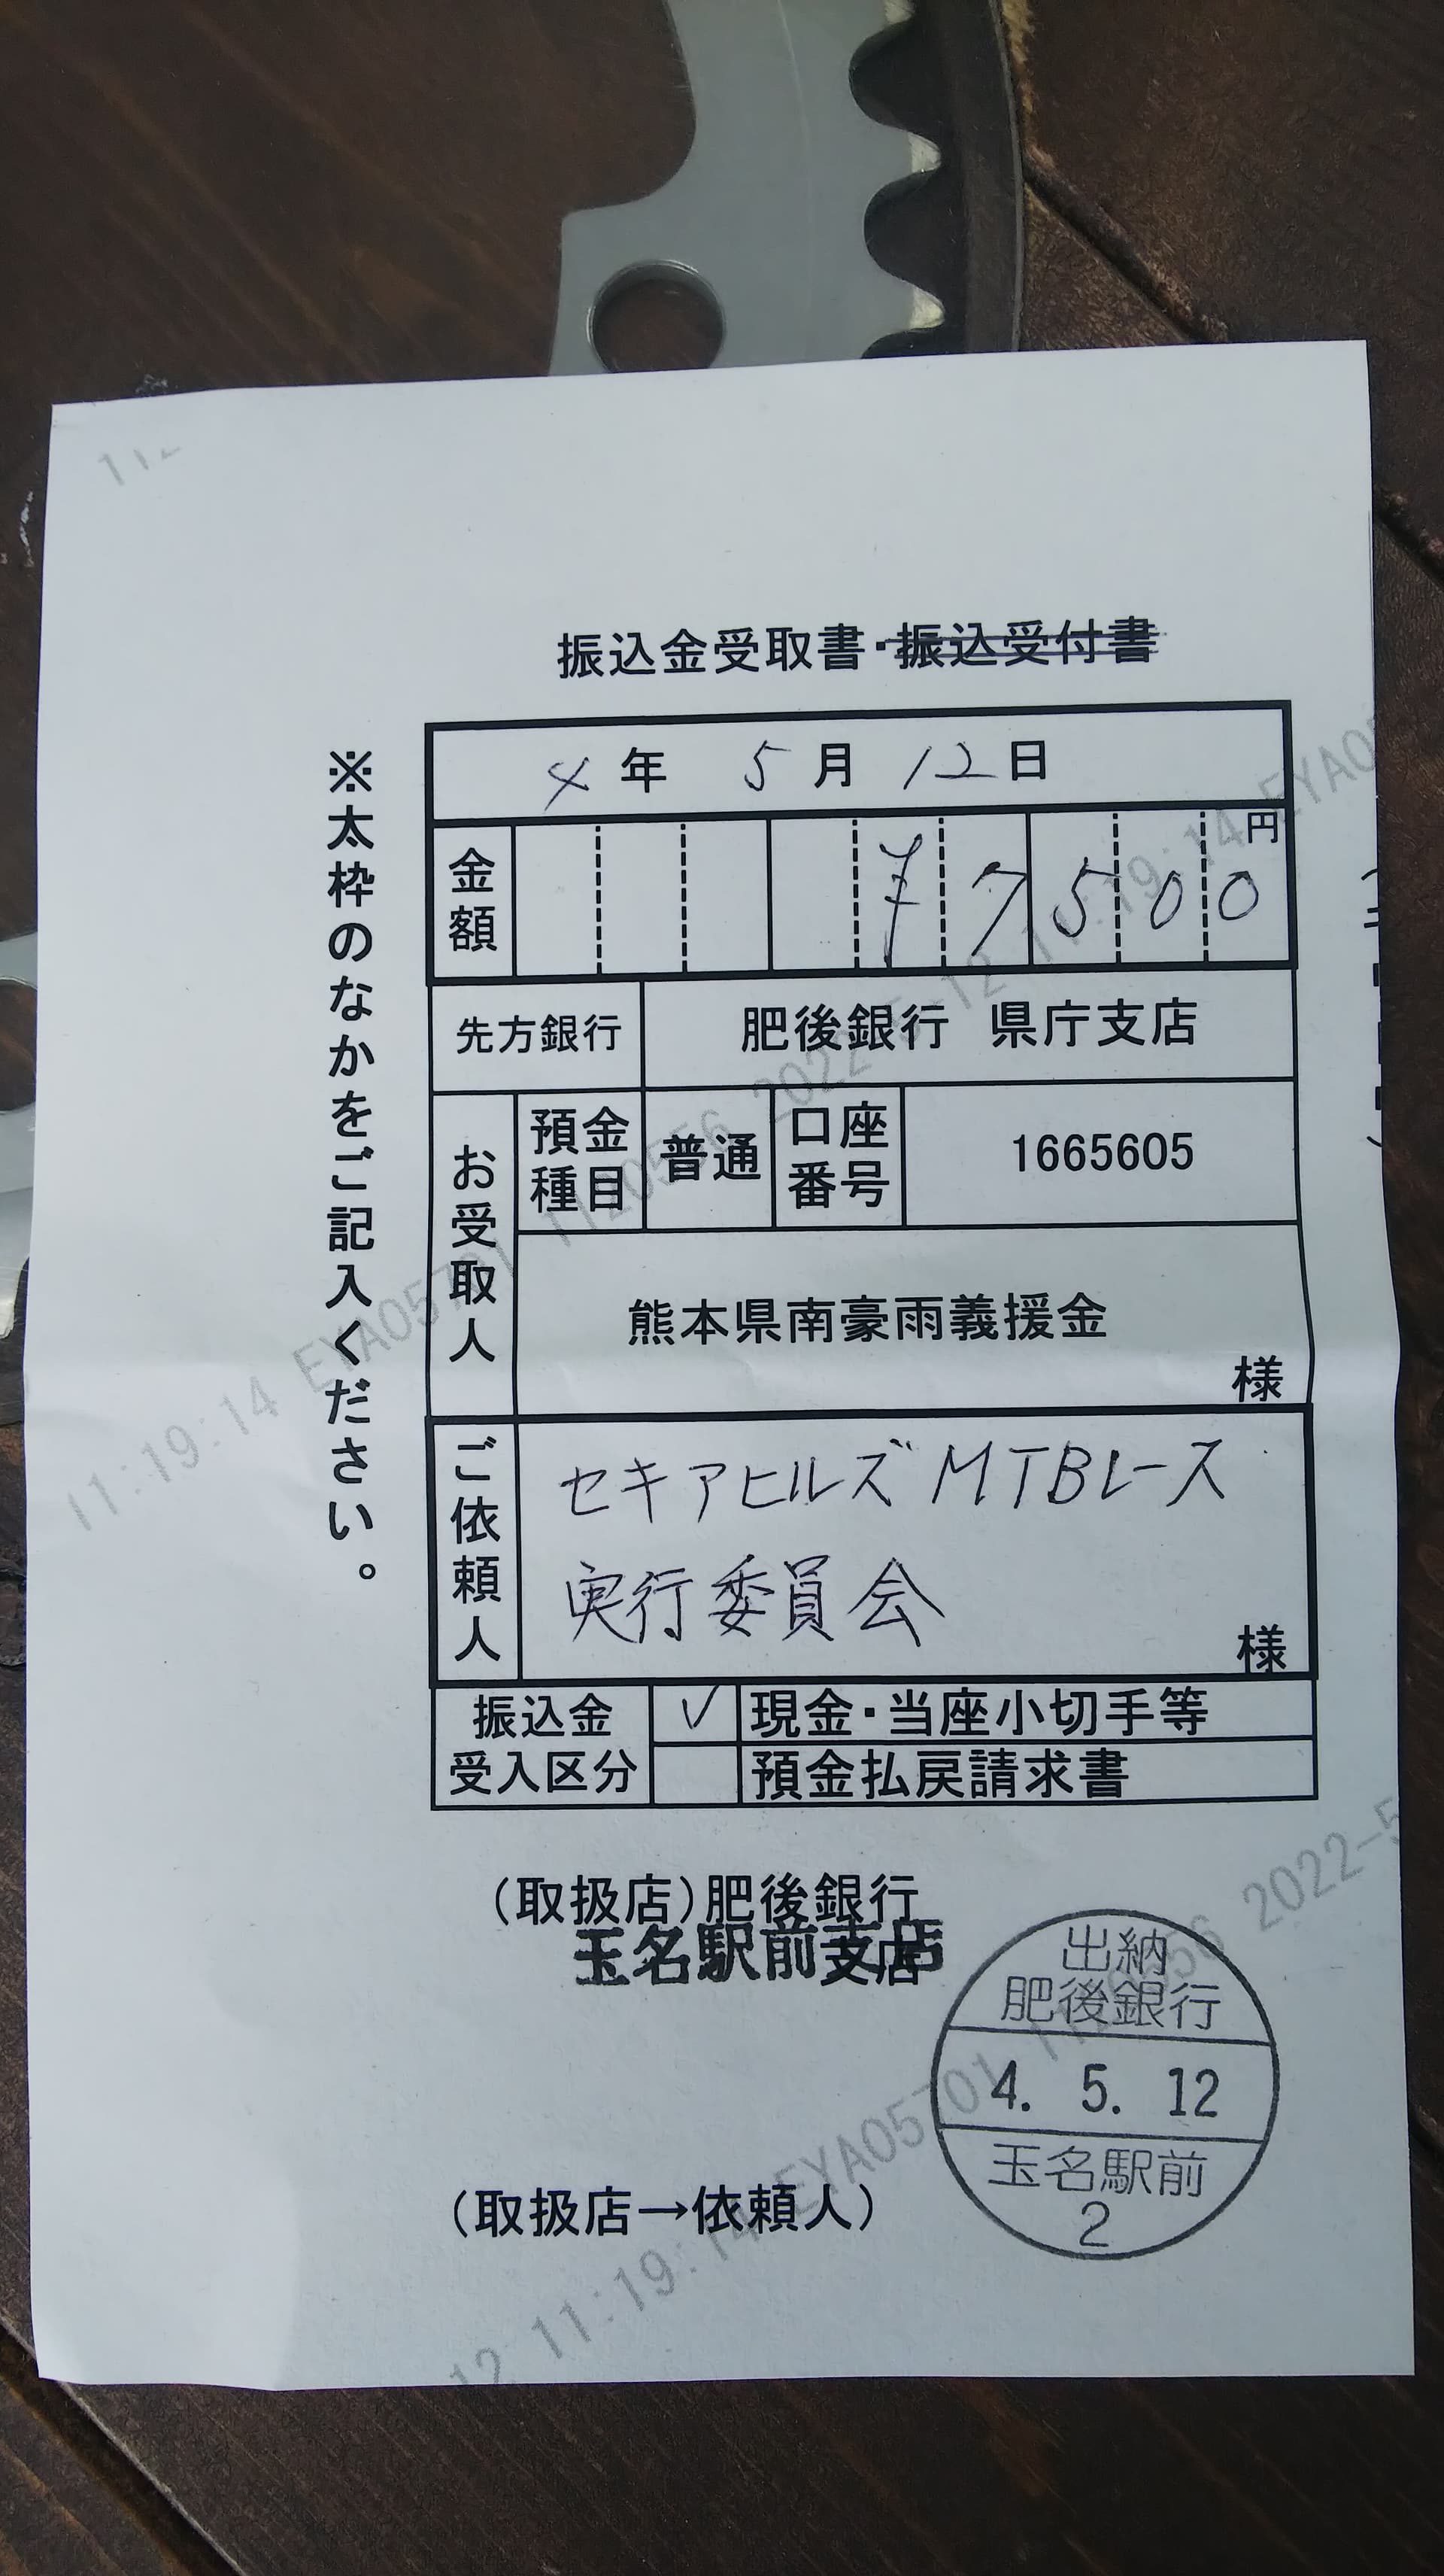 振込金受取書・振込受付書
※太枠のなかをご記入ください。
4年 5月 12日
金額 ¥7500円
先方銀行 肥後銀行 県庁支店
お受取人 預金種目 普通 口座番号 1665605
熊本県南豪雨義援金
様
ご依頼人 セキアヒルズMTBレース
実行委員会
様
振込金受入区分 ✓ 現金・当座小切手等
預金払戻請求書
(取扱店)肥後銀行
玉名駅前支店
支店
出納
肥後銀行
4. 5. 12
玉名駅前
2
(取扱店→依頼人)
11:19:14 EYA05701 1120556 2022-5-12 11:19:14 EYA05
12 11:19:14 EYA05701 1120556 2022-5